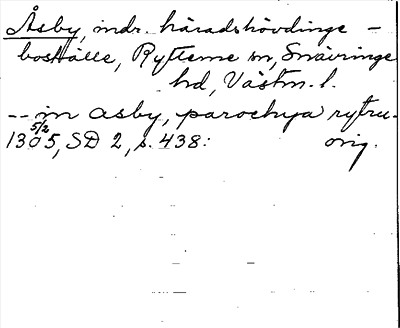 Åsby, indr. häradshövdinge-
boställe, Rytterne sn, Snävringe
hd, Västm. l.
-- in asby, parochya rytru-
1305 5/2, SD 2, s. 438: orig.